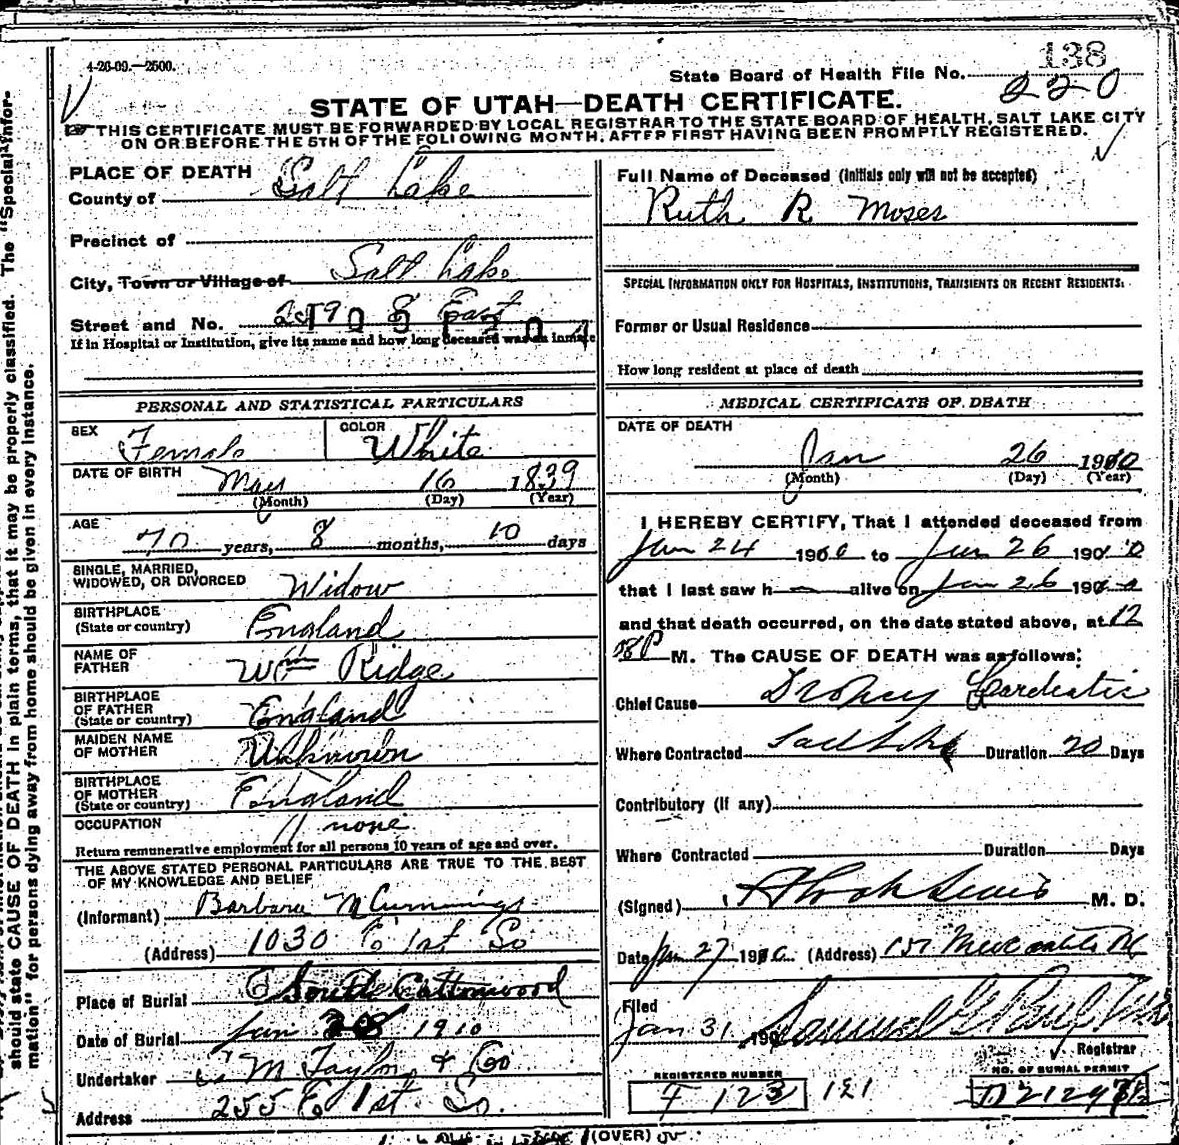 4-20-09.—2500.
138
State Board of Health File No. 220
STATE OF UTAH—DEATH CERTIFICATE.
THIS CERTIFICATE MUST BE FORWARDED BY LOCAL REGISTRAR TO THE STATE BOARD OF HEALTH, SALT LAKE CITY
ON OR BEFORE THE 5TH OF THE FOLLOWING MONTH, AFTER FIRST HAVING BEEN PROMPTLY REGISTERED.
PLACE OF DEATH
County of Salt Lake
Precinct of
City, Town or Village of Salt Lake
Street and No. 8 East
If in Hospital or Institution, give its name and how long deceased was an inmate
Full Name of Deceased (Initials only will not be accepted)
Ruth R Moses
SPECIAL INFORMATION ONLY FOR HOSPITALS, INSTITUTIONS, TRANSIENTS OR RECENT RESIDENTS:
Former or Usual Residence
How long resident at place of death
PERSONAL AND STATISTICAL PARTICULARS
SEX Female COLOR White
DATE OF BIRTH May 16 1839
(Month) (Day) (Year)
AGE
70 years, 8 months, 10 days
SINGLE, MARRIED,
WIDOWED, OR DIVORCED Widow
BIRTHPLACE
(State or country) England
NAME OF
FATHER Wm Ridge
BIRTHPLACE
OF FATHER
(State or country) England
MAIDEN NAME
OF MOTHER Unknown
BIRTHPLACE
OF MOTHER
(State or country) England
OCCUPATION none
Return remunerative employment for all persons 10 years of age and over.
THE ABOVE STATED PERSONAL PARTICULARS ARE TRUE TO THE BEST
OF MY KNOWLEDGE AND BELIEF
(Informant) Barbara McCummings
(Address) 1030 E 1st So
Place of Burial South Cottonwood
Date of Burial Jan 28 1910
Undertaker S M Taylor & Co
Address 255 E 1st So.
MEDICAL CERTIFICATE OF DEATH
DATE OF DEATH
Jan 26 1910
(Month) (Day) (Year)
I HEREBY CERTIFY, That I attended deceased from
Jan 24 1910 to Jan 26 1910
that I last saw h alive on Jan 26 190
and that death occurred, on the date stated above, at 12
P M. The CAUSE OF DEATH was as follows:
Chief Cause Dropsy
Where Contracted Salt Lake Duration 20 Days
Contributory (if any)
Where Contracted Duration Days
(Signed) M. D.
Date Jan 27 1910 (Address) 151 Mercantile Bl
Filed
Jan 31 190 Samuel G Paul
Registrar
REGISTERED NUMBER
F 123 121
NO. OF BURIAL PERMIT
(OVER)
should state CAUSE OF DEATH in plain terms, that it may be properly classified. The "Special Infor-
mation" for persons dying away from home should be given in every instance.